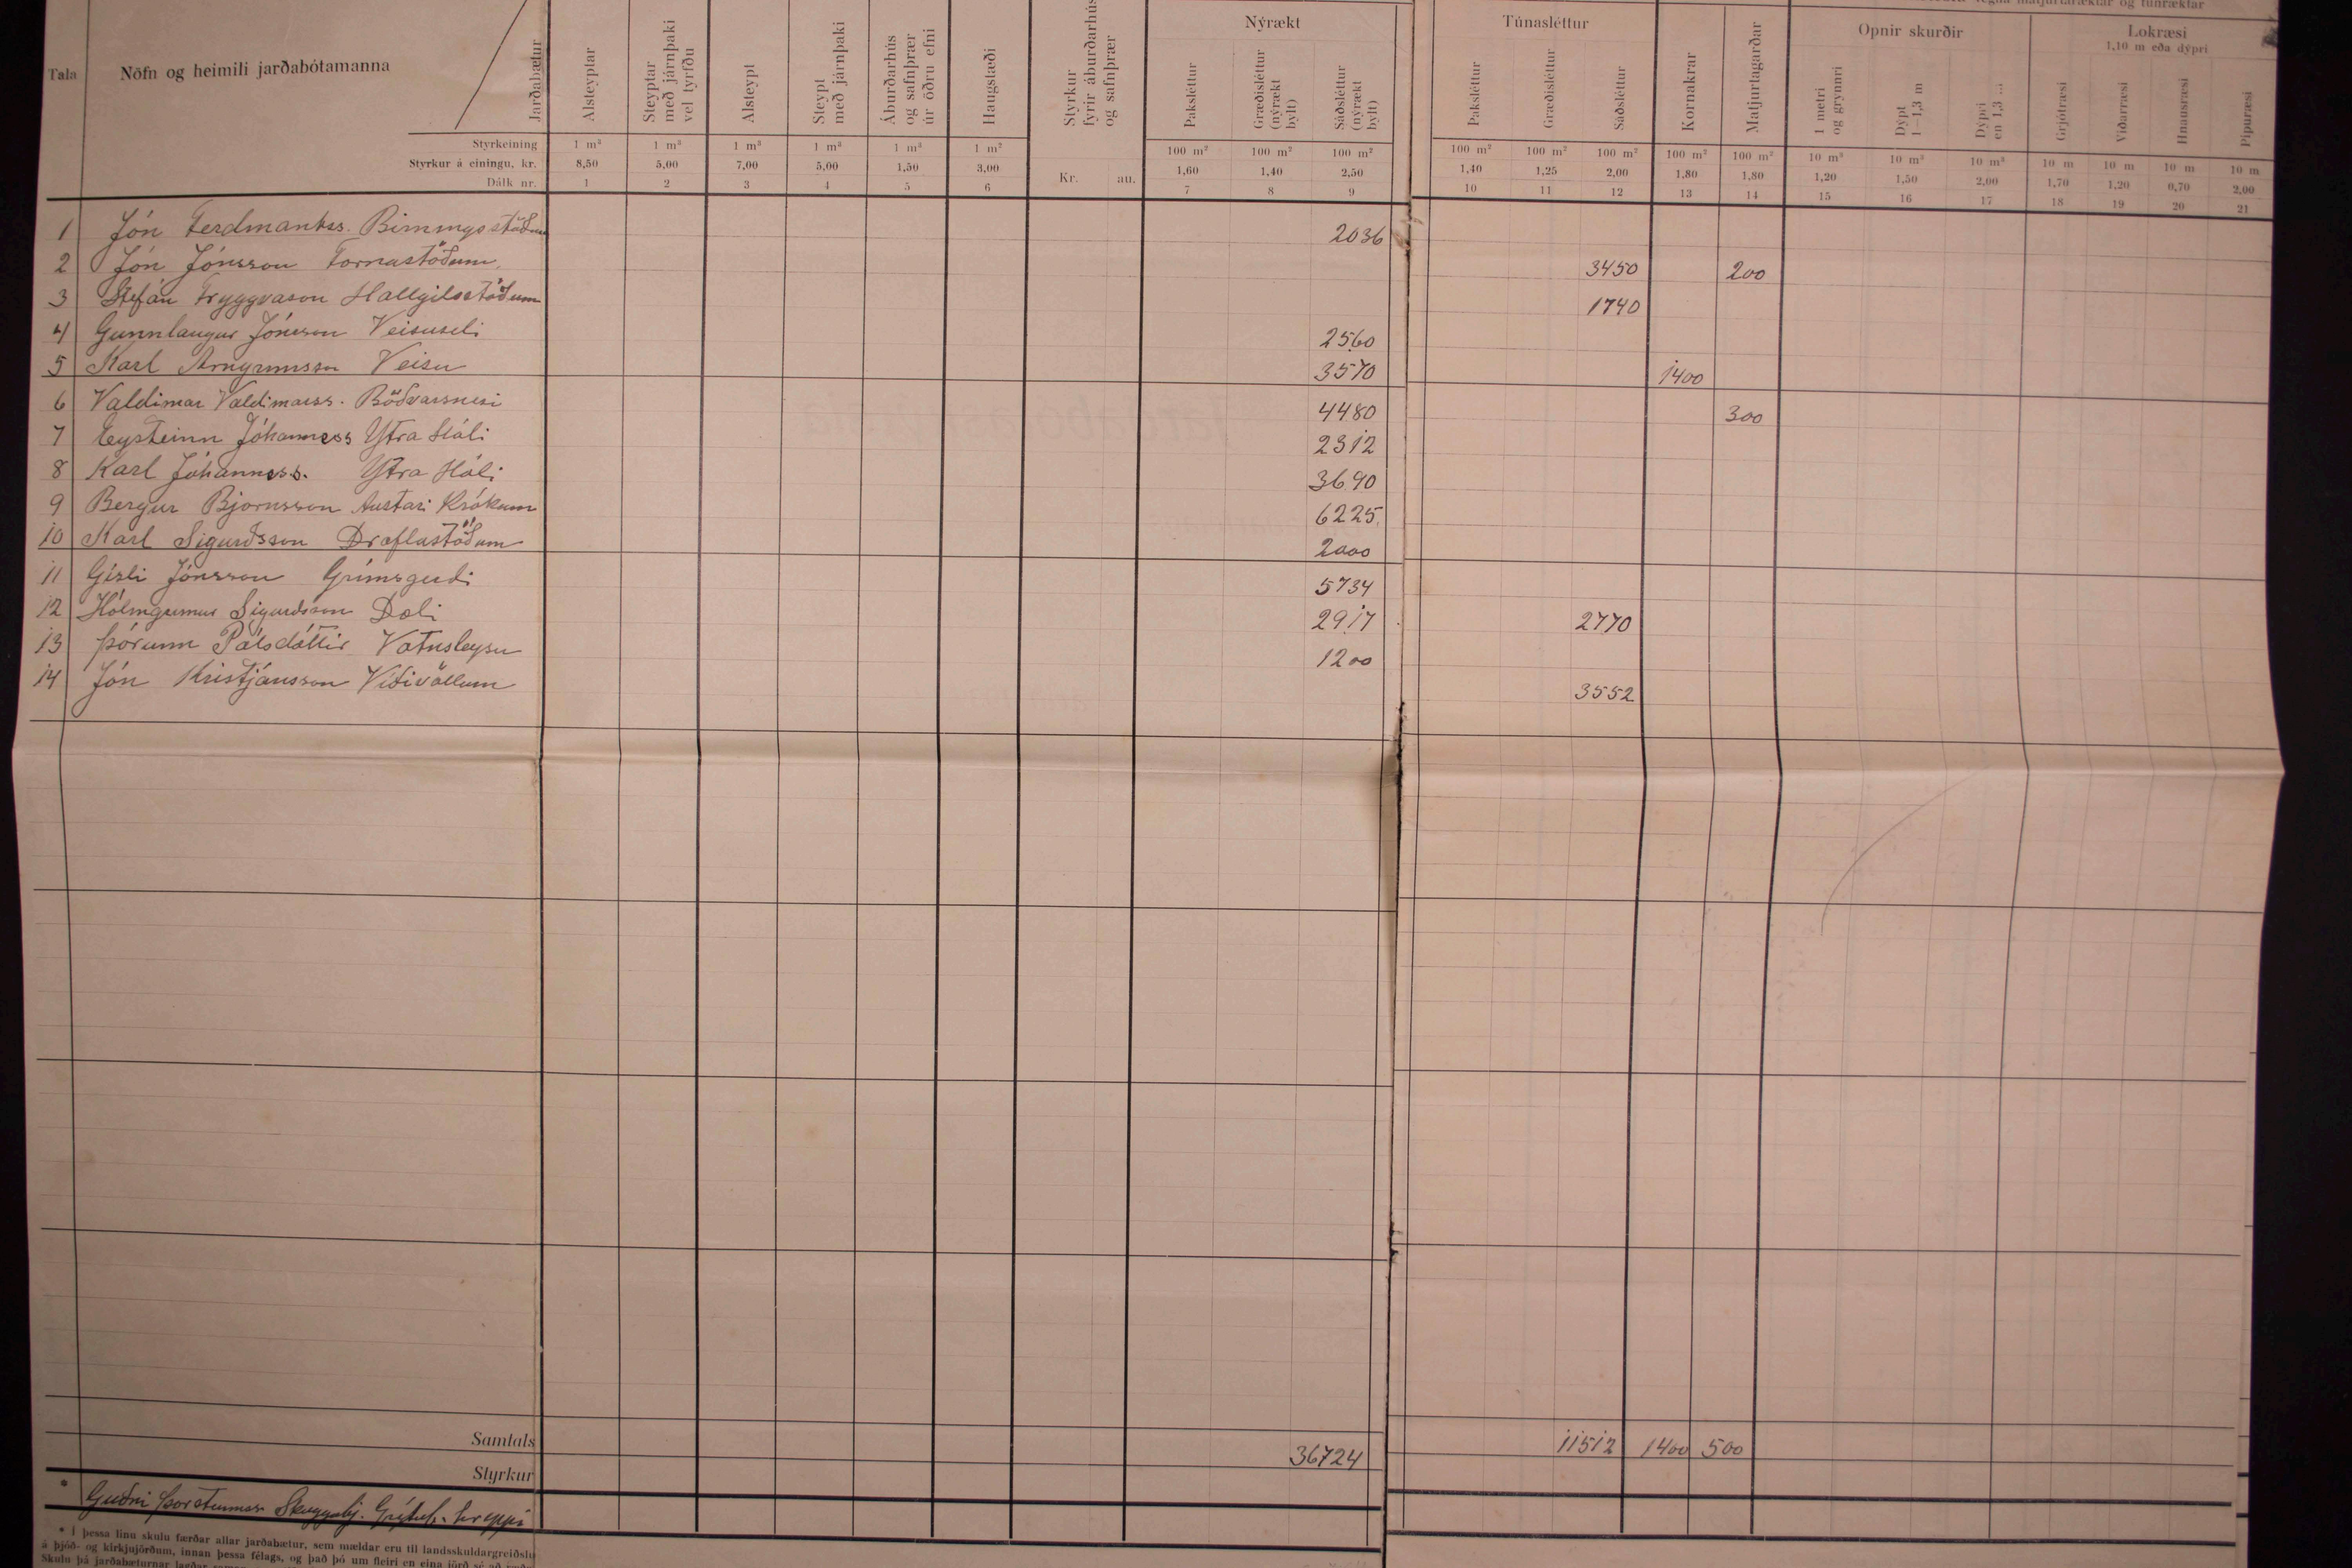 Nýrækt Túnasléttur Opnir skurðir Lokræsi
1,10 m eða dýpri
Tala Nöfn og heimili jarðabótamanna Jarðabætur Alsteyptar Steyptar með járnþaki vel tyrfðu Alsteypt Steypt með járnþaki Áburðarhús og safnþrær úr öðru efni Haugstæði Styrkur fyrir áburðarhús og safnþrær Þaksléttur Græðisléttur (nýrækt bylt) Sáðsléttur (nýrækt bylt) Þaksléttur Græðisléttur Sáðsléttur Kornakrar Matjurtagarðar 1 metri og grynnri Dýpt 1—1,3 m Dýpri en 1,3 Grjótræsi Viðarræsi Hnausræsi Pípuræsi
Styrkeining 1 m³ 1 m³ 1 m³ 1 m³ 1 m³ 1 m² 100 m² 100 m² 100 m² 100 m² 100 m² 100 m² 100 m² 100 m² 10 m³ 10 m³ 10 m³ 10 m 10 m 10 m 10 m
Styrkur á einingu, kr. 8,50 5,00 7,00 5,00 1,50 3,00 Kr. au. 1,60 1,40 2,50 1,40 1,25 2,00 1,80 1,80 1,20 1,50 2,00 1,70 1,20 0,70 2,00
Dálk nr. 1 2 3 4 5 6 7 8 9 10 11 12 13 14 15 16 17 18 19 20 21
1 Jón Ferdinantss. Birningsstöðum 2036
2 Jón Jónsson Fornastöðum 3450 200
3 Stefán Tryggvason Hallgilsstöðum 1740
4 Gunnlaugur Jónsson Veisuseli 2560
5 Karl Arngrímsson Veisu 3570 1400
6 Valdimar Valdimarss. Böðvarsnesi 4480 300
7 Eysteinn Jóhanness Ytra Hóli 2312
8 Karl Jóhanness. Ytra Hóli 3690
9 Bergur Bjornsson Austari Krókum 6225
10 Karl Sigurðsson Draflastöðum 2000
11 Gísli Jónsson Grímsgerði 5734
12 Hólmgrímur Sigurðsson Dæli 2917 2770
13 Þórunn Pálsdóttir Vatnsleysu 1200
14 Jón Kristjánsson Víðivöllum 3552
Samtals 36724 11512 1400 500
Styrkur
* Guðni Þorsteinsson hreppi
* Í þessa línu skulu færðar allar jarðabætur, sem mældar eru til landsskuldargreiðslu
á þjóð- og kirkjujörðum, innan þessa félags, og það þó um fleiri en eina jörð sé að ræða
Skulu þá jarðabæturnar lagðar saman